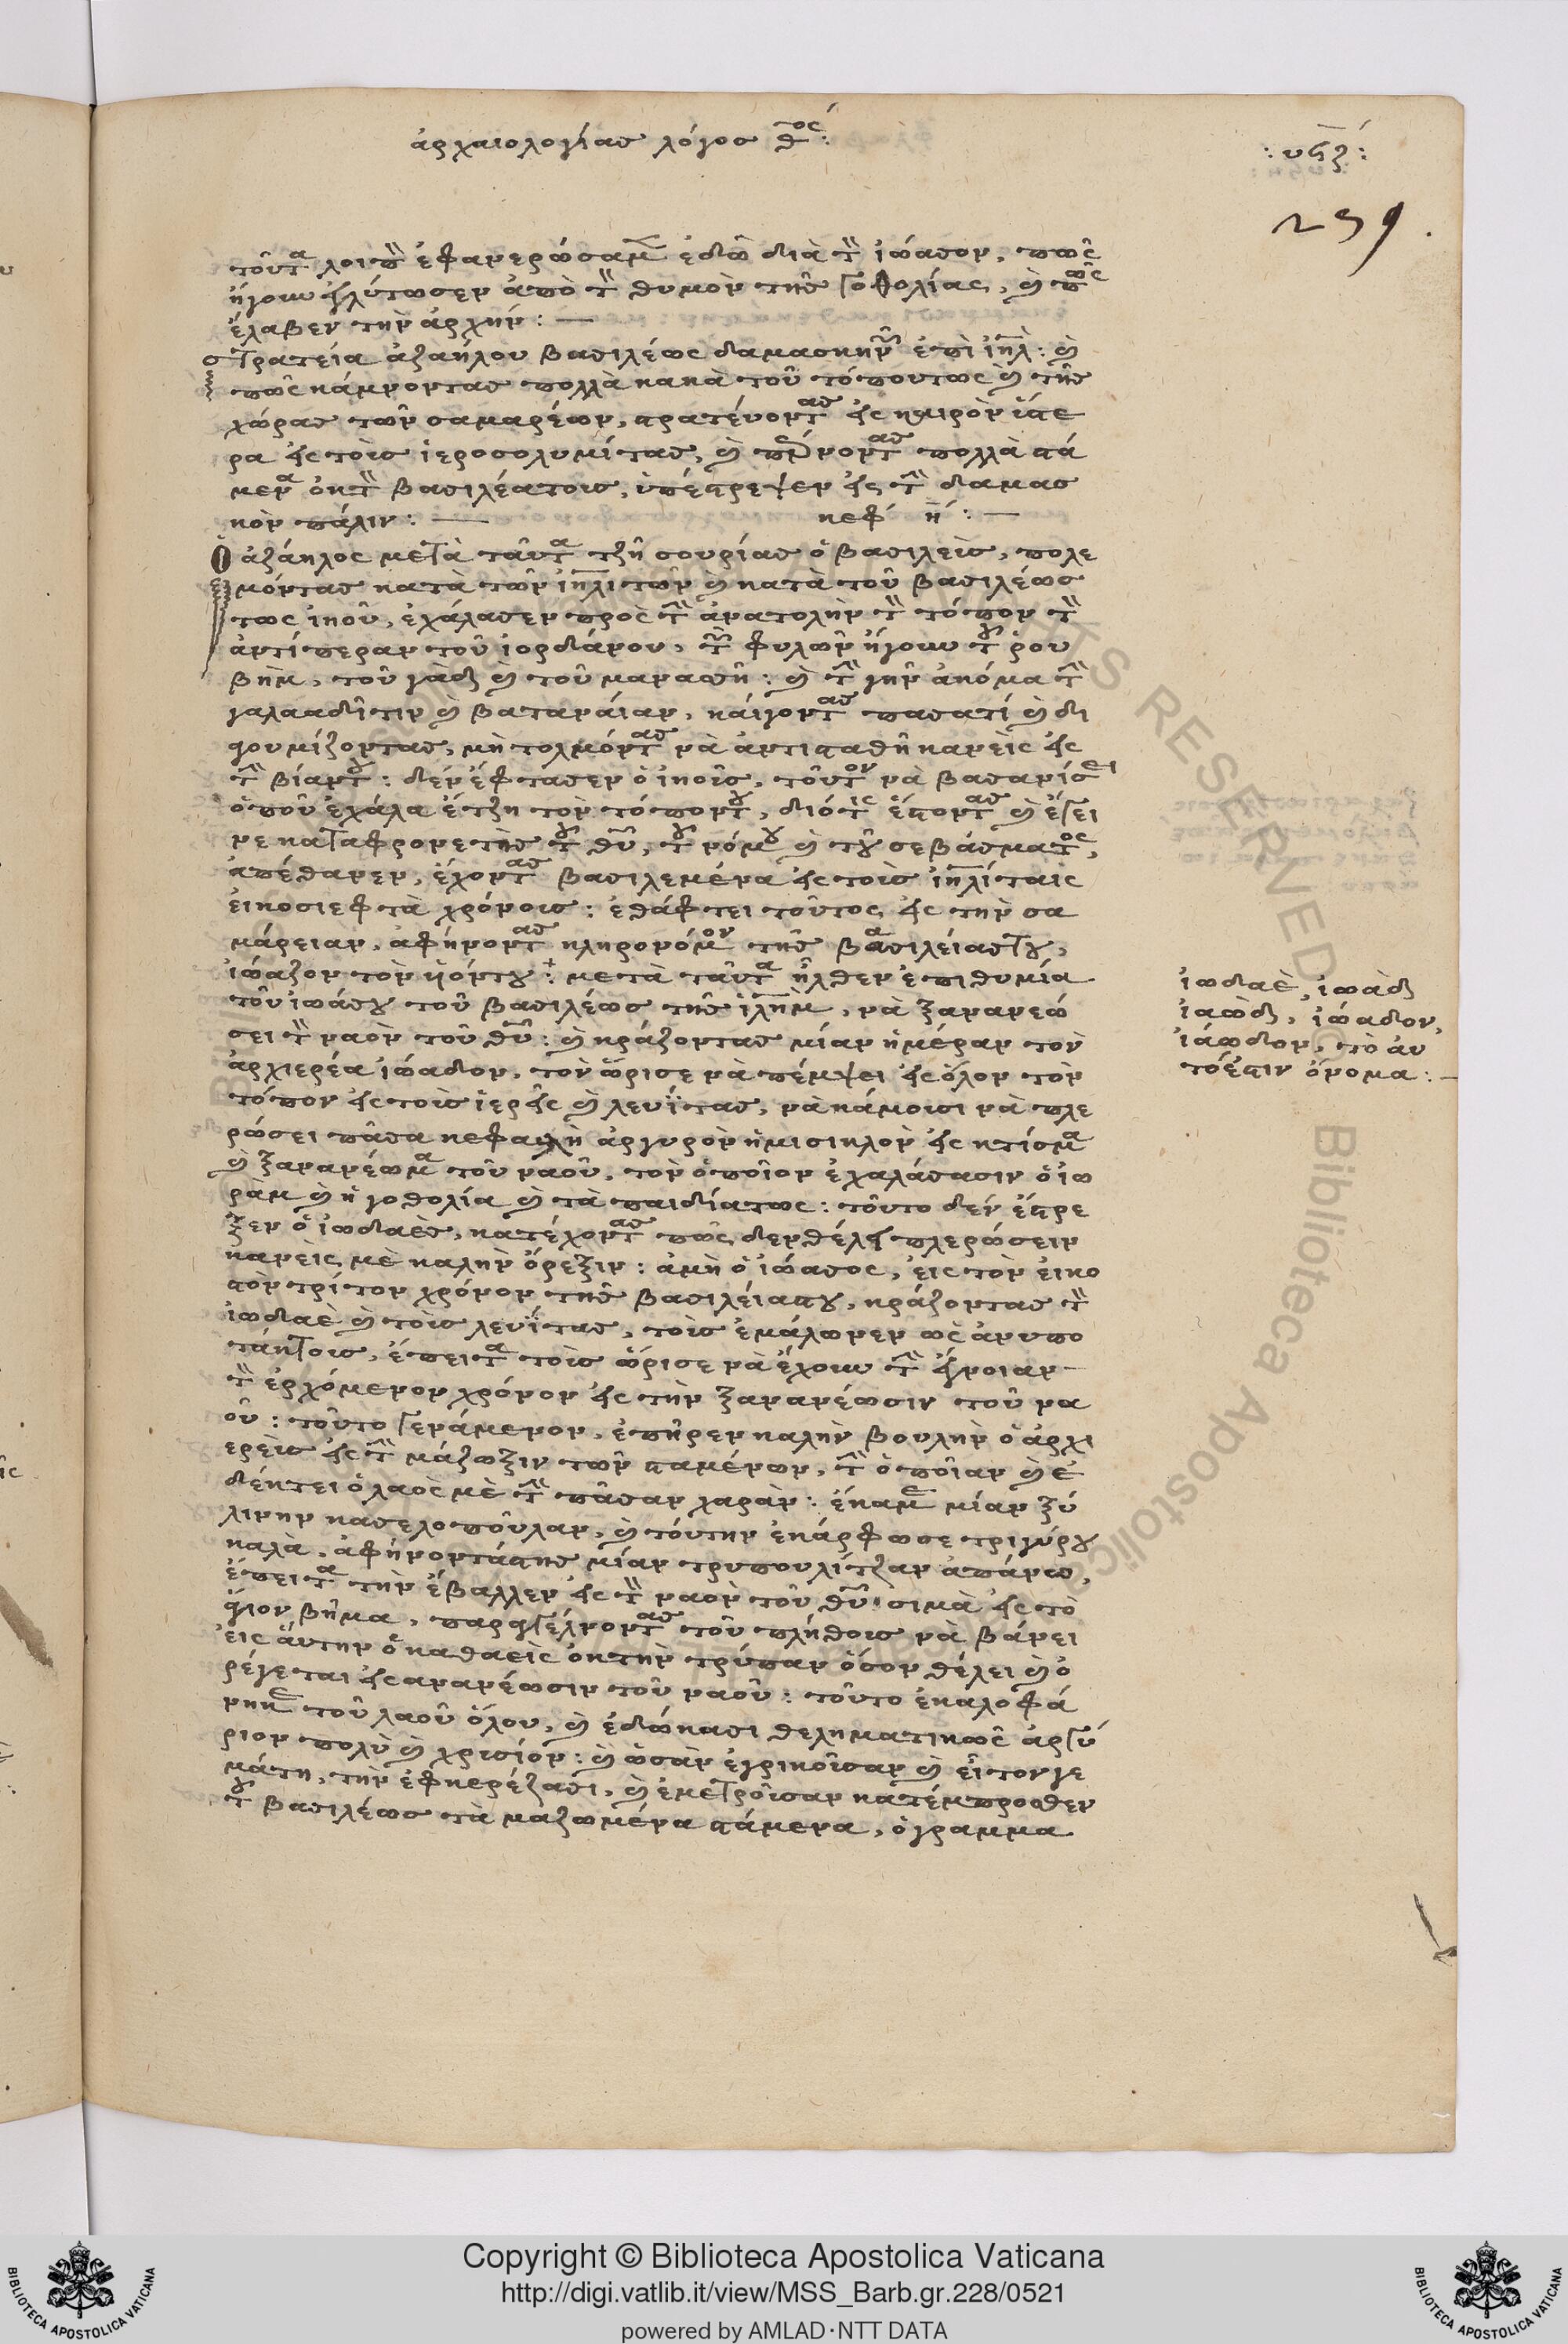 ἀρχαιολογίας λόγος θ^ος:
:υϟζ:
259.
τοῦτα λοιπὸν ἐφανερώσαμεν ἐδῶ διὰ τὸν ἰώασον, πῶς
ἤγουν ἐγλύτωσεν ἀπὸ τὸν θυμὸν τῆς γοθολίας, καὶ πῶς
ἔλαβεν τὴν ἀρχήν: —
στρατεία ἀζαήλου βασιλέως δαμασκηνῶν ἐπὶ ἰηλ: καὶ
πῶς κάμνοντας πολλὰ κακὰ τοῦ τόπουτως καὶ τῆς
χώρας τῶν σαμαρέων, στρατεύοντας εἰς καιρὸν ὕστε
ρα εἰς τοὺς ἱεροσολυμίτας, καὶ παίρνοντας πολλὰ στά
μενα ἐκ τὸν βασιλέατους, ὑπέστρεψεν εἰς τὴν δαμασ
κὸν πάλιν: — κεφ ή: —
Ὁ ἀζάηλος μετὰ ταῦτα τζῆ συρίας ὁ βασιλεὺς, πολε
μόντας κατὰ τῶν ἰηλιτῶν καὶ κατὰ τοῦ βασιλέως
τως ἰηοῦ, ἐχάλασεν πρὸς τὴν ἀνατολὴν τὸν τόπον τὸν
ἀντίπεραν τοῦ ἰορδάνου, τῶν φυλῶν ἤγουν τοῦ ρου
βὴμ, τοῦ γὰδ καὶ τοῦ μανασῆ: καὶ τὴν γῆν ἀκόμα τὴν
γαλααδῖτιν καὶ βαταναίαν, καίγοντας πασατί καὶ δι
αγουμίζοντας, μὴ τολμόντας νὰ ἀντισταθῆ κανεὶς εἰς
τὴν βίαντου: δὲν ἔφτασεν ὁ ἰηοῦς, τοῦτον νὰ βασανίσει
ὁποῦ ἐχάλα ἔτζη τὸν τόποντου, διότις ἔστοντας καὶ ἔγει
νε καταφρονετὴς τοῦ θυ, τοῦ νόμου καὶ τοῦ σεβάσματος,
ἀπέθανεν, ἔχοντας βασιλεμένα εἰς τοὺς ἰηλίταις
εἰκοσιεφτὰ χρόνους: ἐθάφτει τοῦτος εἰς τὴν σα
μάρειαν, ἀφήνοντας κληρονόμον τῆς βασιλείαςτου,
ἰώαζον τὸν ὑόντου: μετὰ ταῦτα ἦλθεν ἐπιθυμία
τοῦ ἰωάσου τοῦ βασιλέως τῆς ἰλημ, νὰ ξανανεώ
σει τὸν ναὸν τοῦ θυ: καὶ κράζοντας μίαν ἡμέραν τὸν
ἀρχιερέα ἰώαδον, τὸν ὥρισε νὰ πέμψει εἰς ὅλον τὸν
τόπον εἰς τοὺς ἱερεῖς καὶ λευΐτας, νὰ κάμουσι νὰ πλε
ρώσει πᾶσα κεφαλὴ ἀργυρὸν ἡμισικλὸν εἰς κτίσμα
καὶ ξανανέωμα τοῦ ναοῦ, τὸν ὁποῖον ἐχαλάσασιν ὁ ἰω
ρὰμ καὶ ἡ γοθολία καὶ τὰ παιδίατως: τοῦτο δὲν ἔστρε
ξεν ὁ ἰωδαὲς, κατέχοντας πῶς δὲν θέλει πλερώσειν
κανεὶς μὲ καλὴν ὄρεξιν: ἀμὴ ὁ ἰώασος, εἰς τὸν εἰκο
στὸν τρίτον χρόνον τῆς βασιλείαςτου, κράζοντας τὸν
ἰωδαὲ καὶ τοὺς λευΐτας, τοὺς ἐμάλωνεν ὡς ἀνυπο
τάκτους, ἔπειτα τοὺς ὥρισε νὰ ἔχουν τὴν ἔγνοιαν
τὸν ἐρχόμενον χρόνον εἰς τὴν ξανανέωσιν τοῦ να
οῦ: τοῦτο γενάμενον, ἐπῆρεν καλὴν βουλὴν ὁ ἀρχι
ερεὺς εἰς τὴν μάζωξιν τῶν σταμένων, τὴν ὁποίαν καὶ ἐ
δέκτει ὁ λαὸς μὲ τὴν πᾶσαν χαρὰν: ἔκαμε μίαν ξύ
λινην κασελοποῦλαν, καὶ τούτην ἐκάρφωσε τριγύρου
καλὰ, ἀφήνοντάςτης μίαν τρυπουλίτζαν ἀπάνω,
ἔπειτα τὴν ἔβαλλεν εἰς τὸν ναὸν τοῦ θυ, σιμὰ εἰς τὸ
ἅγιον βῆμα, παραγγέλνοντας τοῦ πλήθους νὰ βάνει
εἰς αὔτην ὁ καθαεὶς ἐκ τὴν τρύπαν ὅσον θέλει καὶ ὀ
ρέγεται εἰς ἀνανέωσιν τοῦ ναοῦ: τοῦτο ἐκαλοφά
νηκε τοῦ λαοῦ ὅλου, καὶ ἐδώκασι θεληματικῶς ἀργύ
ριον πολὺ καὶ χρισίον: καὶ ὡσὰν ἐγρικοῦσαν καὶ εἶτον γε
μάτη, τὴν ἐφκερέζασι, καὶ ἐμετροῦσαν κατέμπροσθεν
τοῦ βασιλέως τὰ μαζωμένα στάμενα, ὁ γραμμα
ἰωδαὲ, ἰωὰδ
ἰαὼδ, ἰώαδον,
ἰάωδον, τὸ αὐ
τό ἐστιν ὄνομα: —
Copyright © Biblioteca Apostolica Vaticana
http://digi.vatlib.it/view/MSS_Barb.gr.228/0521
powered by AMLAD·NTT DATA